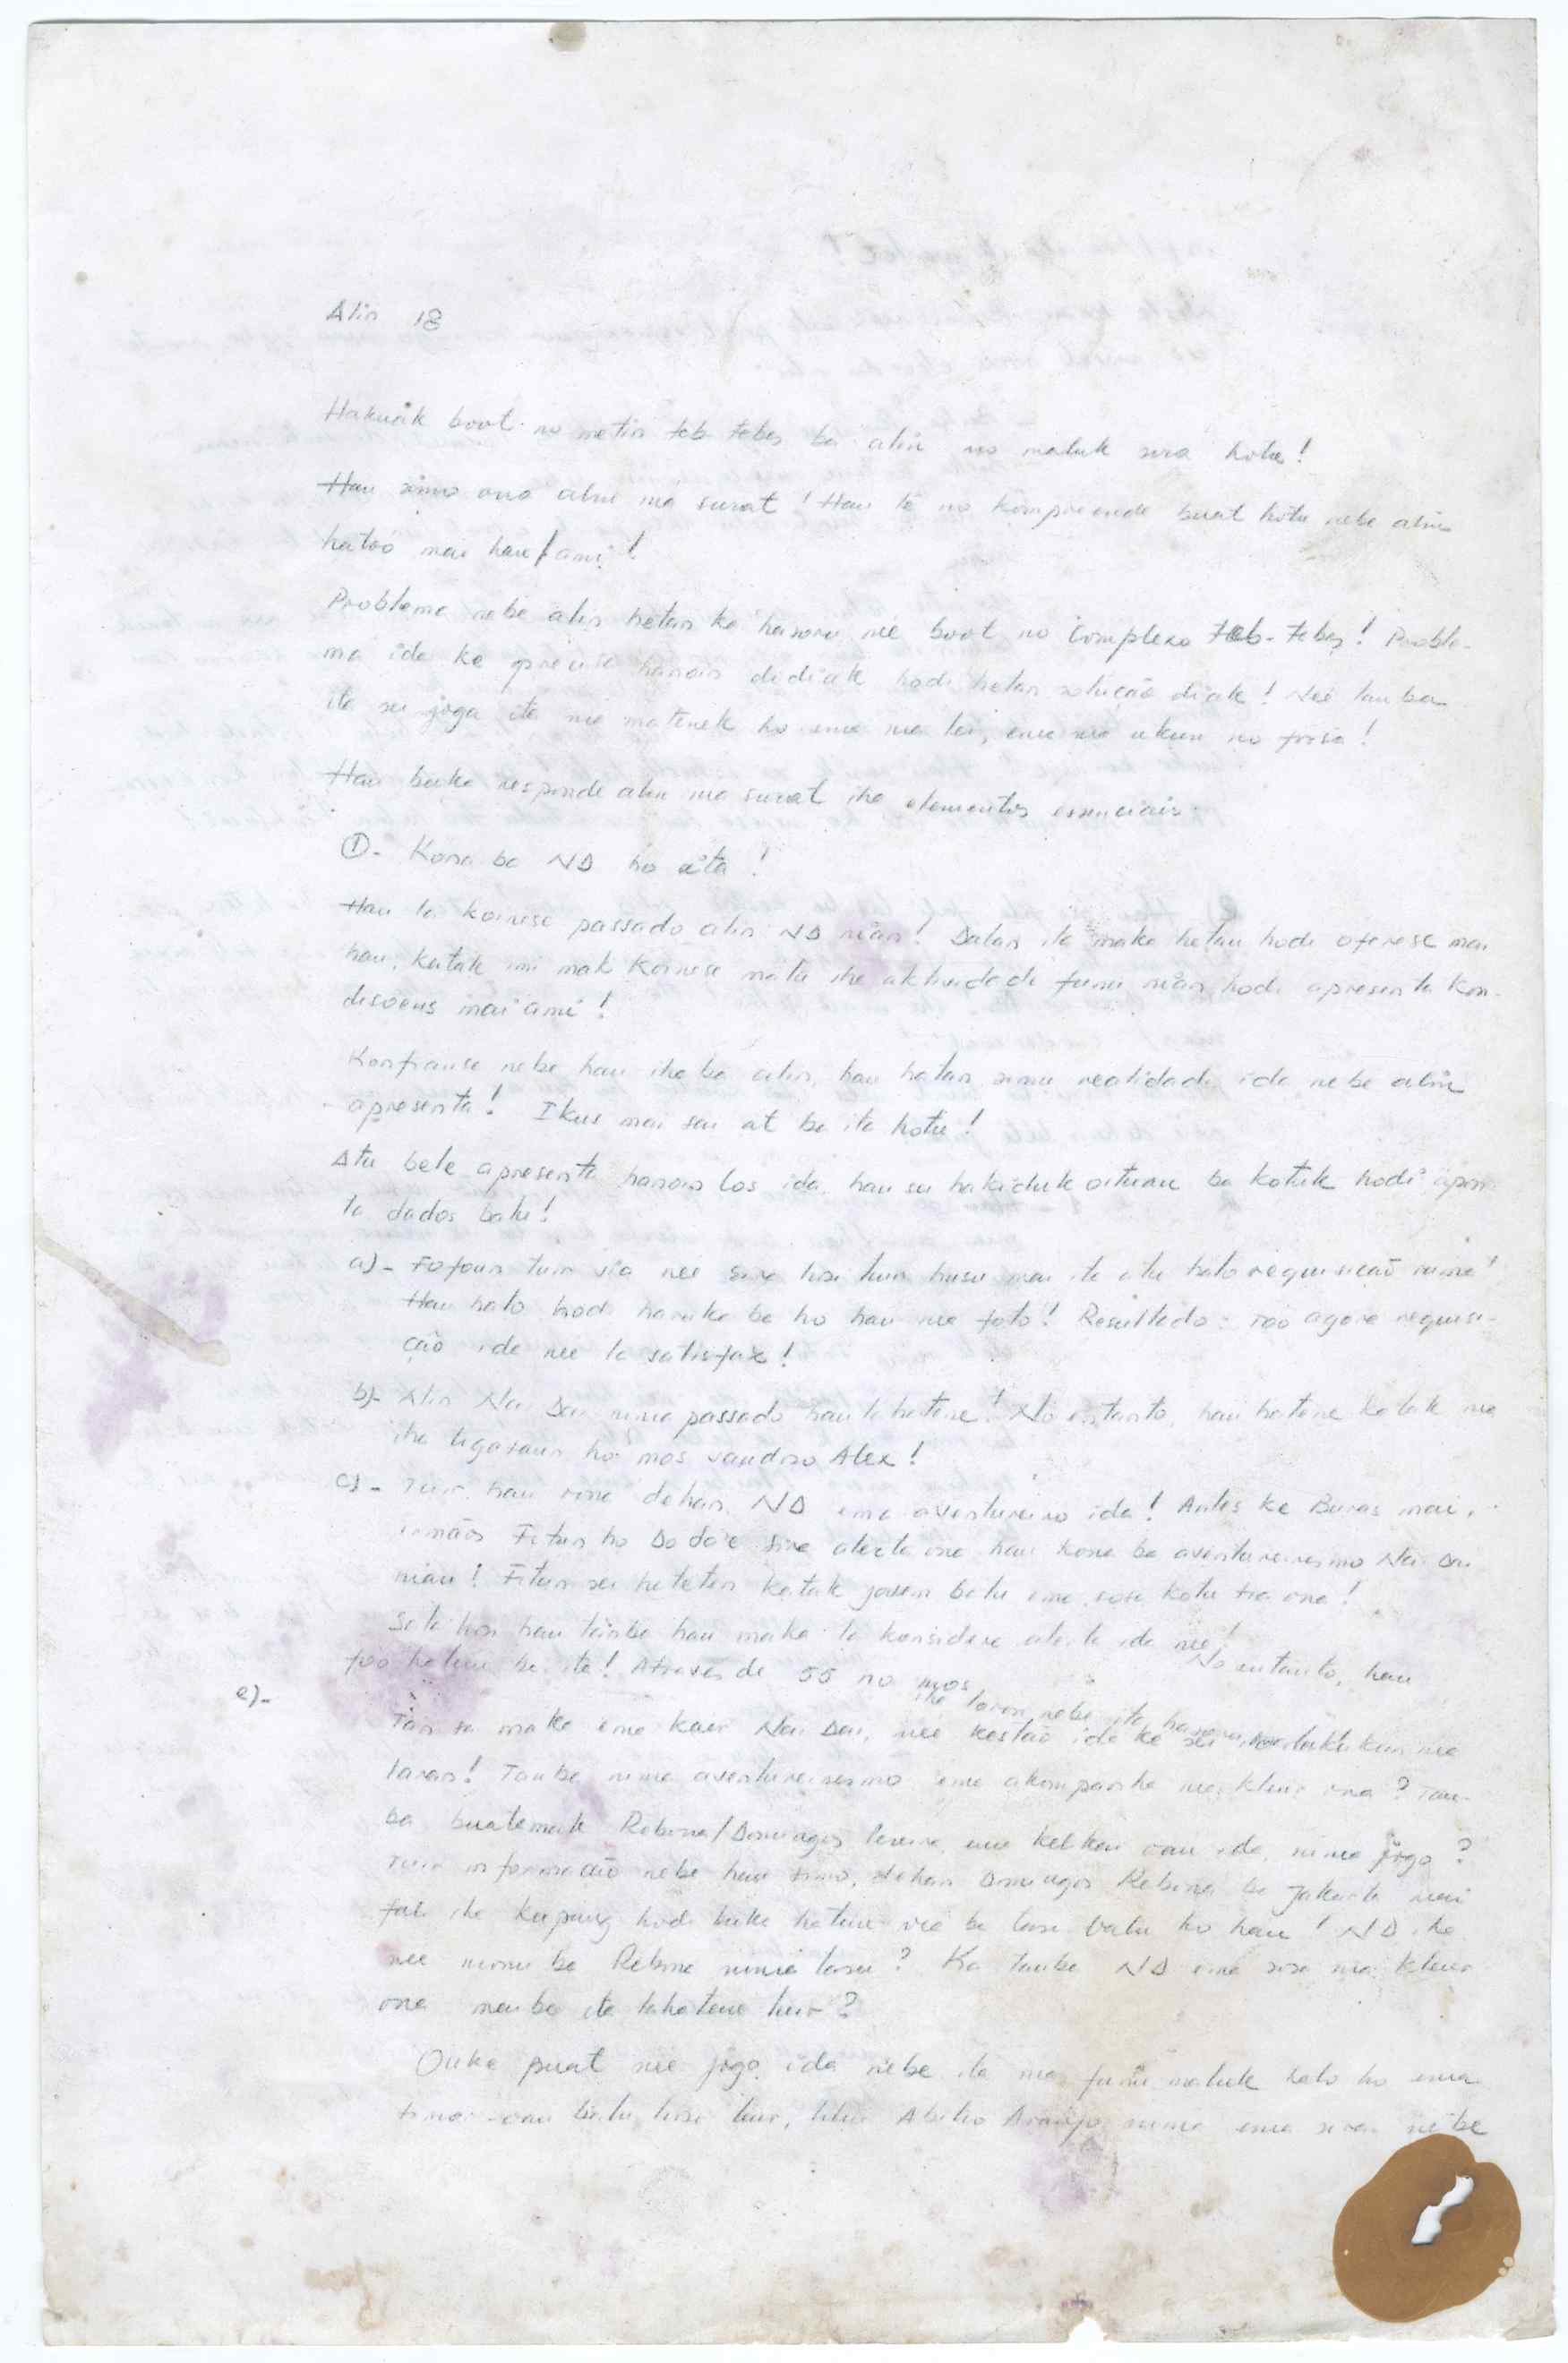 Alin 18
Hakuak boot no metin teb-tebes ba alin no maluk sira hotu!
Hau simo ona alin nia surat! Hau lê no kompreende buat hotu nebe alin
hatoó mai hau/ami!
Problema nebe alin hetan ka hasoru neé boot no complexo teb-tebes! Proble-
ma ida ke precisa hanoin didiak hodi hetan solução diak! Neé tau ba
ita sei joga ita nia matenek ho ema nia lei, ema nia ukun no forsa!
Hau buka responde alin nia surat iha elementos essenciais.
①- Kona ba ND ho ita!
Hau la koinese passado alin ND nian! Dalan ita maka hetan hodi oferese mai
hau, katak imi mak koinese nia iha aktividade funu nian, hodi apresenta kon-
disoens mai ami!
Konfiansa nebe hau iha ba alin, hau hatan simu realidade ida nebe alin
apresenta! Ikus mai sai at ba ita hotu!
Atu bele apresenta hanoin los ida, hau sei hakiduk oituan ba kotuk hodi apresen-
ta dados balu!
a)- Fofoun tuir sia neé husu mai ita atu halo requisição
Hau halo hodi haruka ba ho hau nia foto! Resultado: too agora requisi-
ção ida neé la satisfaz!
b)- Alin Nai Dai ninia passado hau la hatene! No entanto, hau hatene katak nia
iha ligasaun ho mos saudoso Alex!
c)- Tuir hau rona dehan, ND ema aventureiro ida! Antes ke Buras mai,
irmãos Fitun ho Dodo'e sira alerta ona hau kona ba aventureirismo Nai Dai
nian! Fitun sei hateten katak jovem balu ema sosa kotu tia ona!
hau tanba hau maka la konsidera alerta ida neé! No entanto, hau
foó hatene ba ita! Através de 55 no mos
iha loron nebe ita hasoru malu
e)-
Tan sa maka ema kaer Nai Dai, neé kestão ida ke sei iha nia
laran! Tanba ninia aventureirismo ema akompanha nia kleur ona? Tan-
ba Rebina/Domingos ema ida, ninia jogo?
Tuir informação nebe hau simo, dehan Domingos Rebina ba Jakarta mai
fali iha kupang hodi buka hatene nia ba balu ho hau! ND iha
neé monu ba Rebina ninia lasu? Ka tanba ND ema sosa nia kleur
ona mai be ita la hatene
Ouke buat neé jogo ida nebe ita nia funu maluk halo ho ema
timor-oan balu hosi liur, liliu Abilio Araújo ninia ema sira nebe